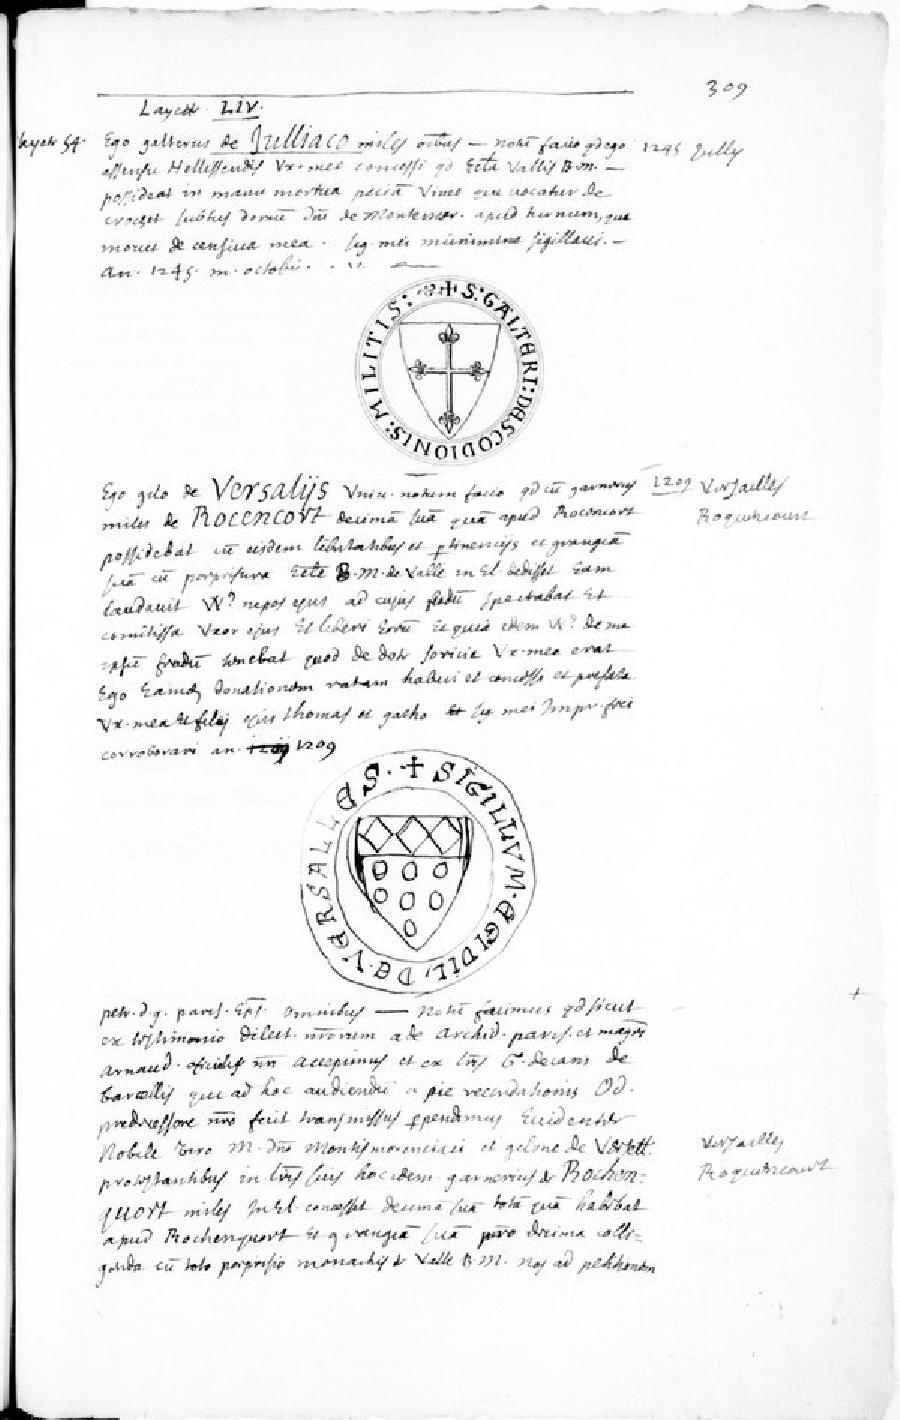 309
Layett. LIV.
layett 54. Ego galterus de Julliaco miles oībus — notū facio qd ego 1245 Jully
assensu Hellissendis Ux. mee concessi qd Eccla Vallis B. M. —
possideat in manu mortua peciā Vinee que vocatur de
crochet subtus domū dni de Montemor. apud turnum, que
movet de censiva mea. sig. mei munimine sigillavi. —
An. 1245. m. octobri.
✝ S: GALTERI: DE SCODIONIS: MILITIS:
Ego gilo de Versalijs Univ. notum facio qd cū garnerius 1209 Versailles
miles de ROCENCORT decimā suā quā apud Rocencort Roquencourt
possidebat cū eisdem libertatibus et ptinencijs et grangiā
suā cū porprisura Eccle B. M. de Valle in El. dedisset Eam
laudavit W? nepos ejus ad cujus feodū spectabat Et
comitissa Uxor ejus Et liberi Eorū Et quia idem W? de me
ipsū feodū tenebat quod de dote Ux. mee erat
Ego Eamdē donationem ratam habui et concessi et prefata
Ux. mea Et filij ejus thomas et gacho sig. mei Impr. feci
corroborari an. 1209
✝ SIGILLVM. EGIDII. DE. VERSALLES.
petr. d. g. paris. Eps. omnibus — Notū facimus qd sicut
ex testimonio dilect. nrorum ade Archid. paris. et magri
arnaud. nri accepimus et ex lris G. decani de
qui ad hoc audiendū a pie recordationis Od.
predecessore nro fuit transmissus ppendimus Evidenter
Nobile viro M. dno Montismorenciaci et gilone de Versell. Versailles
protestantibus in lris suis hoc idem. garnerius de Rochen= Roquencourt
quort miles In El. concesset decima suā totā quā habebat
apud Rochenquort Et grangiā suā pro decima colli=
genda cū toto porprisio monachis de Valle B. M. nos ad petitionem